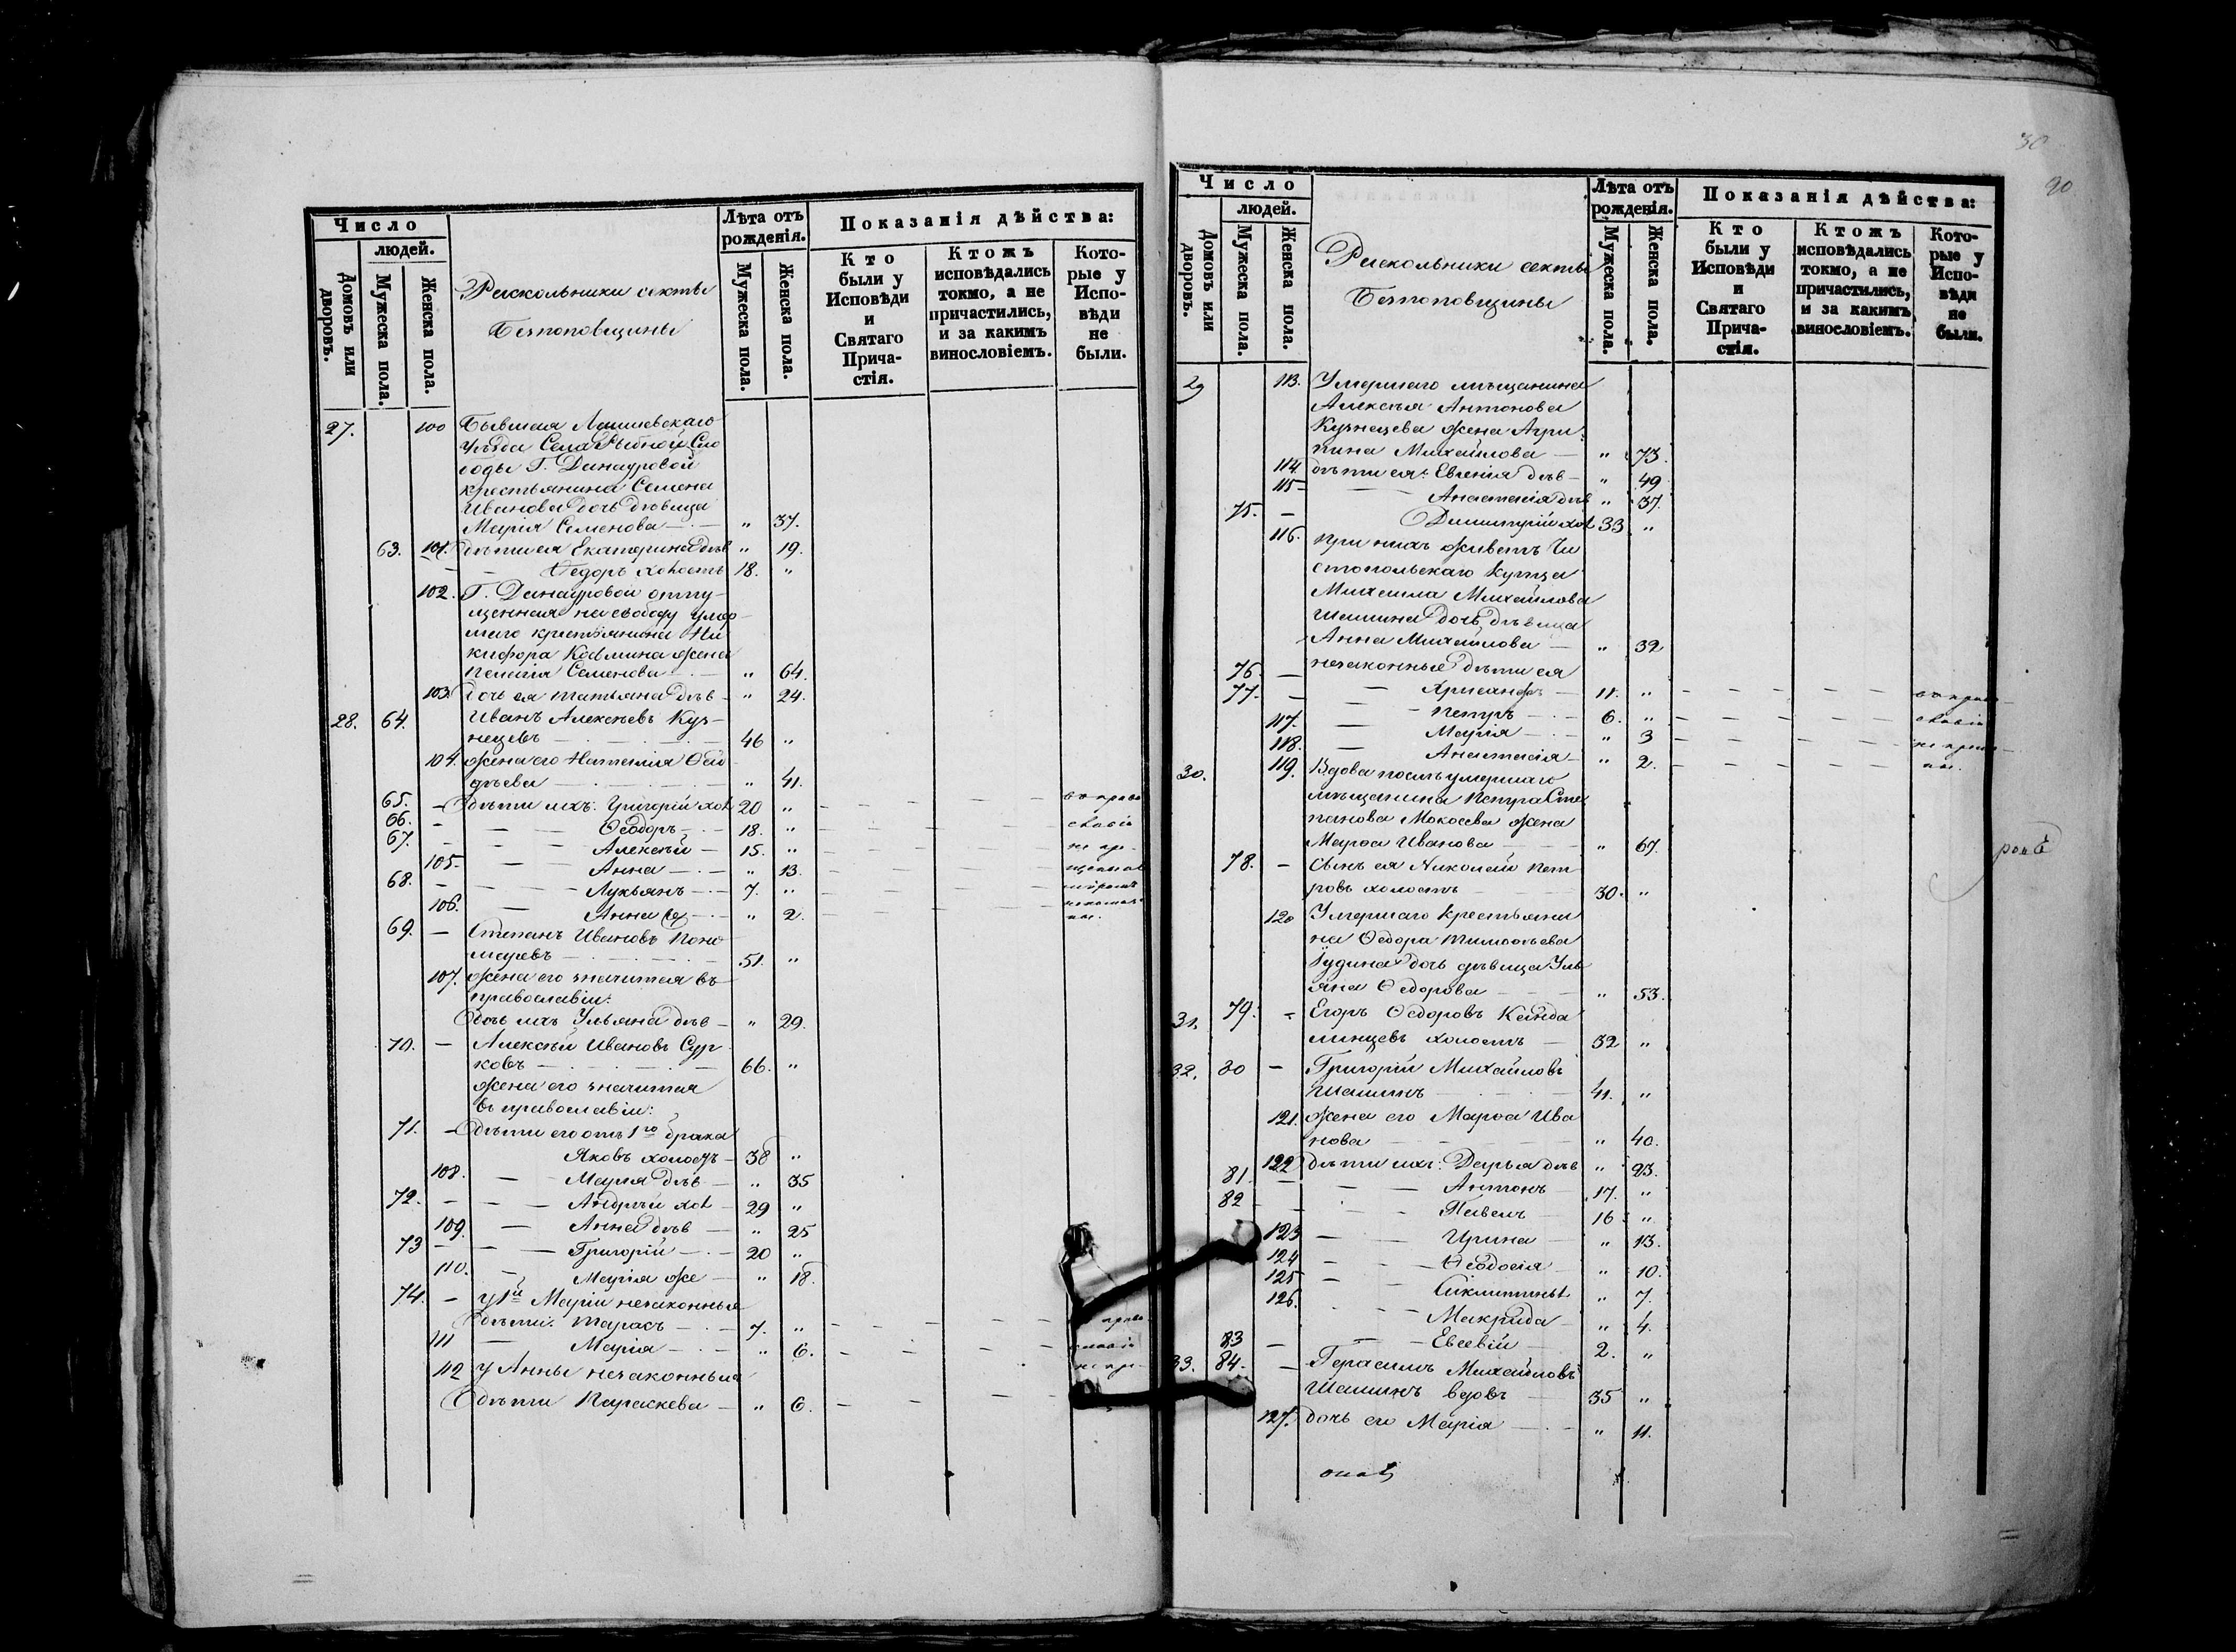 Число
людей.
Домовъ или дворовъ.
Мужеска пола.
Женска пола.
Раскольники секты
Безпоповщины
Лѣта отъ рожденія.
Мужеска пола.
Женска пола.
Показанія дѣйства:
Кто были у Исповѣди и Святаго Прича-стія.
Ктожъ исповѣдались токмо, а не причастились, и за какимъ винословіемъ.
Кото-рые у Испо-вѣди не были.
27. 100 Бывшая Лаишевскаго
уѣзда Села Рыбной Сло
боды Г. Данауровой
крестьянина Семена
Иванова дочь дѣвица
Марія Семенова — " 37.
63. 101. дѣти ея Екатерина дѣв " 19.
— Ѳедоръ холостъ 18. "
102. Г. Данауровой отпу-
щенная на свободу умер
шаго крестьянина Ни
кифора жена
Семенова — " 64.
103. дочь ея Татьяна дѣв — " 24.
28. 64. Иванъ Алексѣевъ Куз-
нецовъ — 46 "
104. жена его Наталія
— " 41.
65. — дѣти ихъ: Григорій хол 20 " — — — — въ право
66. — — Ѳеодоръ — 18. " — — — — славіи
67. — — Алексѣй — 15. " — — — — не пр-
105. — Анна — " 13. — — — —
68. — — Лукьянъ — 7. " — — — —
106. — Анна — " 2. — — — —
69. — Степанъ Ивановъ Поно
маревъ — 51. "
107. жена его значится въ
православіи:
дочь ихъ Ульяна дѣв — " 29.
70. — Алексѣй Ивановъ Сур
ковъ — 66. "
жена его значится
въ православіи:
71. — дѣти его отъ 1го брака
Яковъ холостъ — 38 "
108. — Марія дѣв — " 35
72. — — Андрей хол — 29 "
109. — Анна дѣв — " 25
73 — — Григорій — 20 "
110. — Марія же — " 18.
74. — у 1й Маріи незаконныя
дѣти: Тарасъ — 7. " — — — — право-
111 — Марія — " 6. — — — — славіи
112 у Анны незаконныя не пр-
дѣти Параскева — " 6. — — —
30
90
Число
людей.
Домовъ или дворовъ.
Мужеска пола.
Женска пола.
Раскольники секты
Безпоповщины
Лѣта отъ рожденія.
Мужеска пола.
Женска пола.
Показанія дѣйства:
Кто были у Исповѣди и Святаго Прича-стія.
Ктожъ исповѣдались токмо, а не причастились, и за какимъ винословіемъ.
Кото-рые у Испо-вѣди не были.
29 113. Умершаго мѣщанина
Алексѣя Антонова
Кузнецова жена Агри
пина Михайлова — " 73.
114. дѣти ея: Евгенія дѣв — " 49
115 — — Анастасія дѣв " 37.
75. — Димитрій хол 33 "
116. При нихъ живетъ Чи
стопольскаго купца
Михаила Михайлова
Шашина дочь дѣвица
Анна Михайлова — " 32
незаконные дѣти ея
76. — — Хрисанфъ — 11. " — — — — въ право-
77. — — Петръ — 6. " — — — — славіи
117. — Марія — " 3 — — — —
118. — Анастасія — " 2. — — — —
30. 119. Вдова послѣ умершаго
мѣщанина Петра Сте
панова Мокеева жена
Марѳа Иванова — " 67.
78. — Сынъ ея Николай Пет
ровъ холостъ — 30. "
120 Умершаго крестьяни
на Ѳедора Тимоѳѣева
Гудина дочь дѣвица Уль
яна Ѳедорова — " 53.
31. 79. — Егоръ Ѳедоровъ Канда
линцевъ холостъ — 32 "
32. 80 — Григорій Михайловъ
Шашинъ — 41. "
121. жена его Марѳа Ива
нова — " 40.
122 дѣти ихъ: Дарья дѣв " 23.
81. — — Антонъ — 17. "
82 — — Павелъ — 16 "
123 — Ирина — " 13.
124 — Ѳеодосія — " 10.
125 — " 7.
126. — Макрида — " 4.
83 — — Евсевій — 2. "
33. 84. — Герасимъ Михайловъ
Шашинъ вдовъ — 35 "
127. дочь его Марія — " 11.